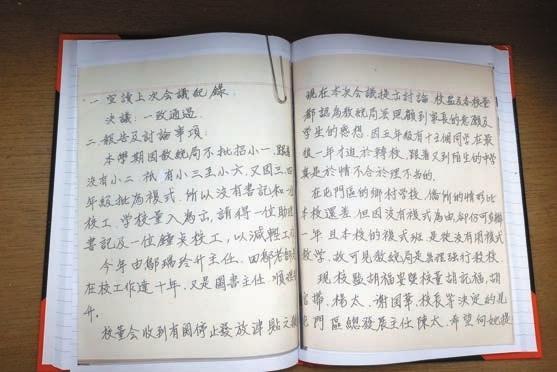 一宣讀上次会議記錄:
決議:一致通過
二.報告及討論事項:
本學期因教統局不批招小一,
沒有小二,祇有小三至小六,又因三、四
年級批為複式,所以沒有書記和
校工,学校量入為出,請得一位助理
書記及一位鐘点校工,以減輕工
今年由鄔瑞玲升主任,因鄔老師
在校工作達十年,又是圖書主任,順理
升。
校董会收到有関停止發放津貼文
現在本次会議提出討論,校監及各校董
都認為教統局没照顧到家長的意願及
学生的感想,因五年級有十三個同学,在最
後一年才迫於轉校,跟着又到陌生的中学
真是於情不合於理不當的。
在屯門區的鄉村学校,僑所的情形比
本校還差,但因没有複式為由,卻仍可多辦
一年,且本校的複式班是從没有用複式
教学,故可見教統局是無理強行殺校。
現校監胡福安暨校董胡記福,胡
官帶,楊太,谢國華,校長等決定約見
屯門區總發展主任陳太,希望向她提